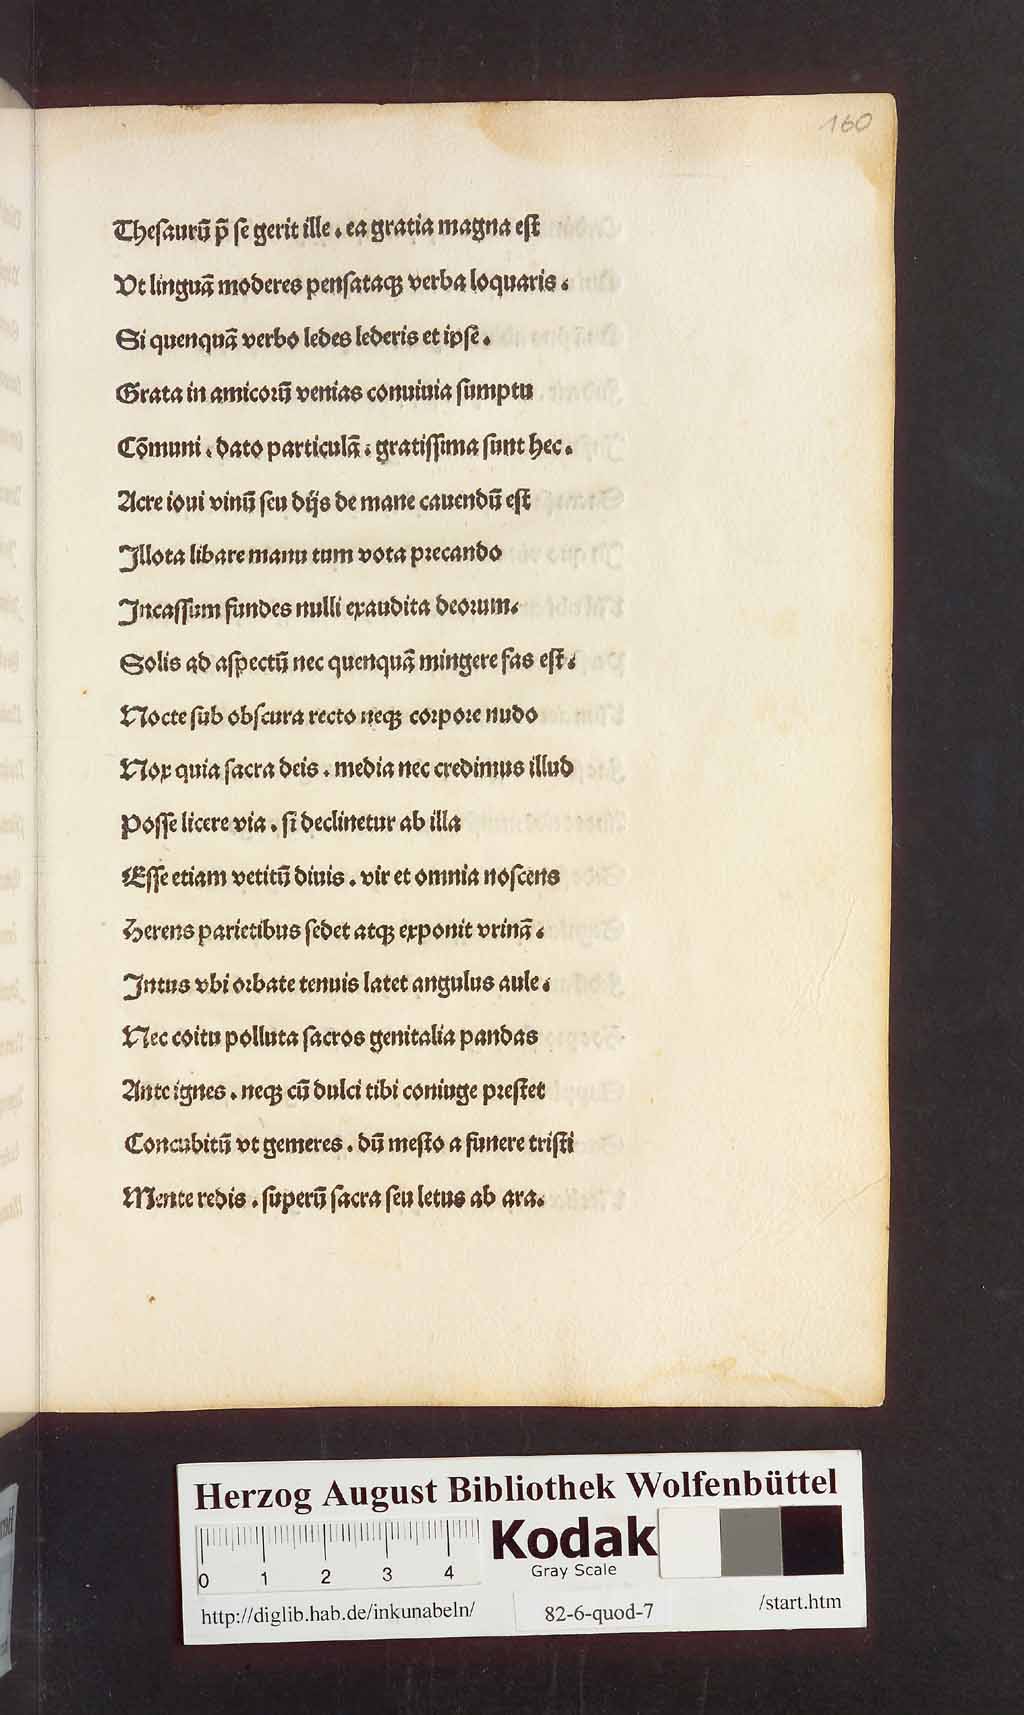 160
Thesaurū p̄ se gerit ille . ea gratia magna est
Vt linguā moderes pensataqꝫ verba loquaris .
Si quenquā verbo ledes lederis et ipse .
Grata in amicorū venias conuiuia sumptu
Cōmuni . dato particulā . gratissima sunt hec .
Acre ioui vinū seu dijs de mane cauendū est
Illota libare manu tum vota precando
Incassum fundes nulli exaudita deorum .
Solis ad aspectū nec quenquā mingere fas est .
Nocte sub obscura recto neqꝫ corpore nudo
Nox quia sacra deis . media nec credimus illud
Posse licere via . si declinetur ab illa
Esse etiam vetitū diuis . vir et omnia noscens
Herens parietibus sedet atqꝫ exponit vrinā .
Intus vbi orbate tenuis latet angulus aule .
Nec coitu polluta sacros genitalia pandas
Ante ignes . neqꝫ cū dulci tibi coniuge prestet
Concubitū vt gemeres . dū mesto a funere tristi
Mente redis . superū sacra seu letus ab ara .
Herzog August Bibliothek Wolfenbüttel
Kodak
Gray Scale
0 1 2 3 4
http://diglib.hab.de/inkunabeln/ 82-6-quod-7 /start.htm